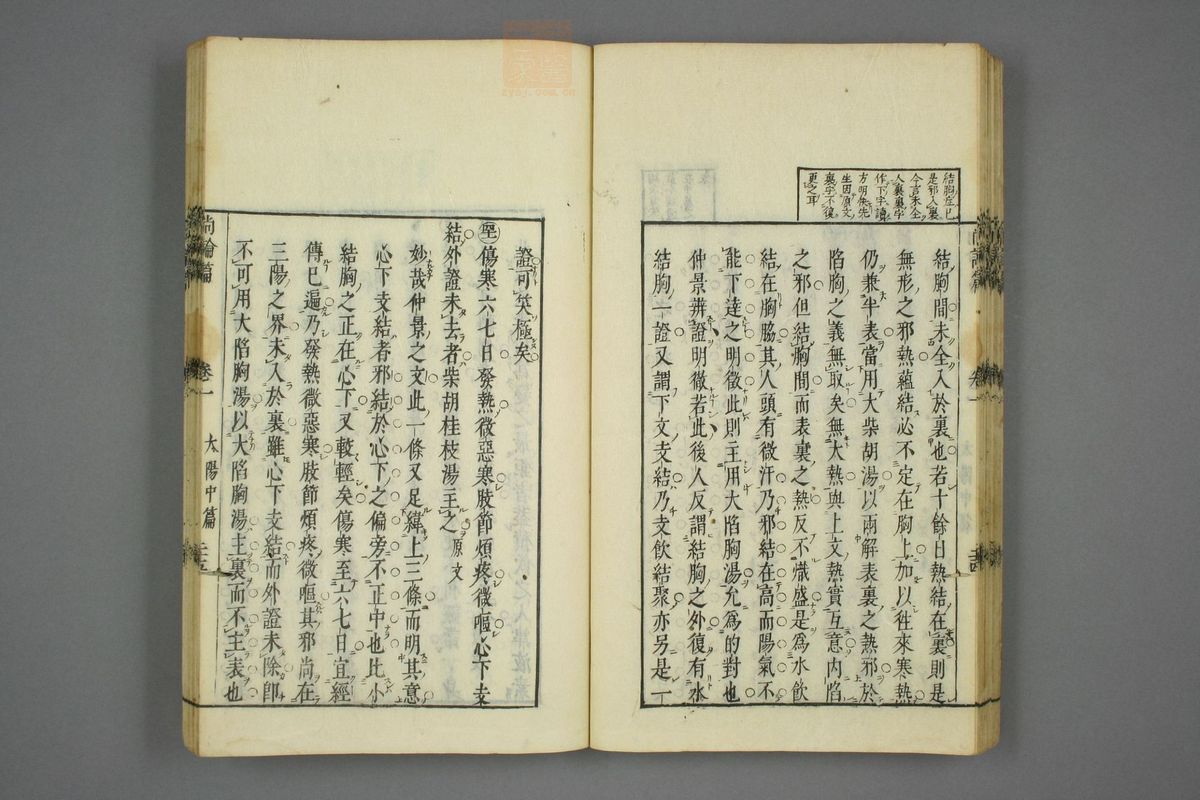 結胸症已
是邪入裏
今言未全
入裏裏字
作下字讀
方明快先
生因原文
裏字不復
更之耳
結胸間未全入於裏也若十餘日熱結在裏則是
無形之邪熱蘊結必不定在胸上加以徃來寒熱
仍兼半表當用大柴胡湯以兩解表裏之熱邪於
陷胸之義無取矣無大熱與上文熱實互意內陷
之邪但結胸間而表裏之熱反不熾盛是爲水飲
結在胸脇其人頭有微汗乃邪結在高而陽氣不
能下達之明徵此則主用大陷胸湯允爲的對也
仲景辨證明徹若此後人反謂結胸之外復有水
結胸一證又謂下文支結乃支飲結聚亦另是一
尚論篇 卷一 太陽中篇
證可笑極矣
傷寒六七日發熱微惡寒肢節煩疼微嘔心下支
結外證未去者柴胡桂枝湯主之 原文
妙哉仲景之文此一條又足緯上三條而明其意
心下支結者邪結於心下之偏旁不正中也比小
結胸之正在心下又較輕矣傷寒至六七日宜經
傳已遍乃發熱微惡寒肢節煩疼微嘔其邪尚在
三陽之界未入於裏雖心下支結而外證未除卽
不可用大陷胸湯以大陷胸湯主裏而不主表也